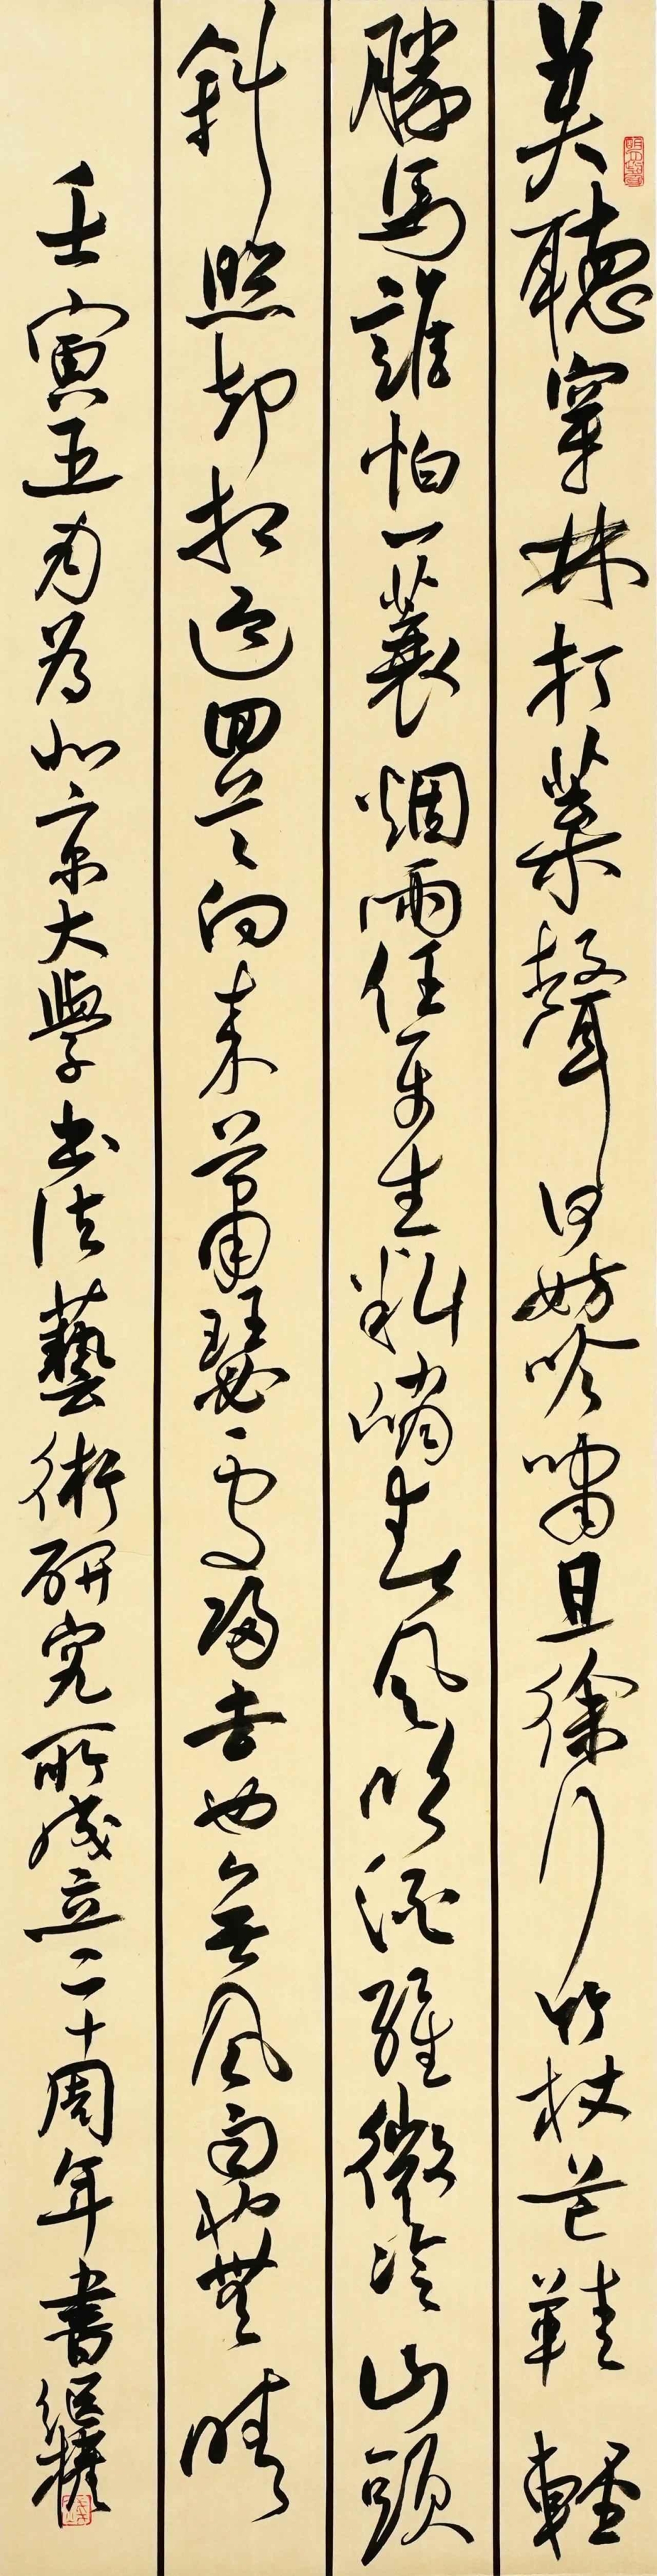 莫聽穿林打葉聲何妨吟嘯且徐行竹杖芒鞋輕
勝馬誰怕一蓑烟雨任平生料峭春風吹酒醒微冷山頭
斜照却相迎回首向來蕭瑟處歸去也無風雨也無晴
壬寅五月為北京大學書法藝術研究所成立二十周年書